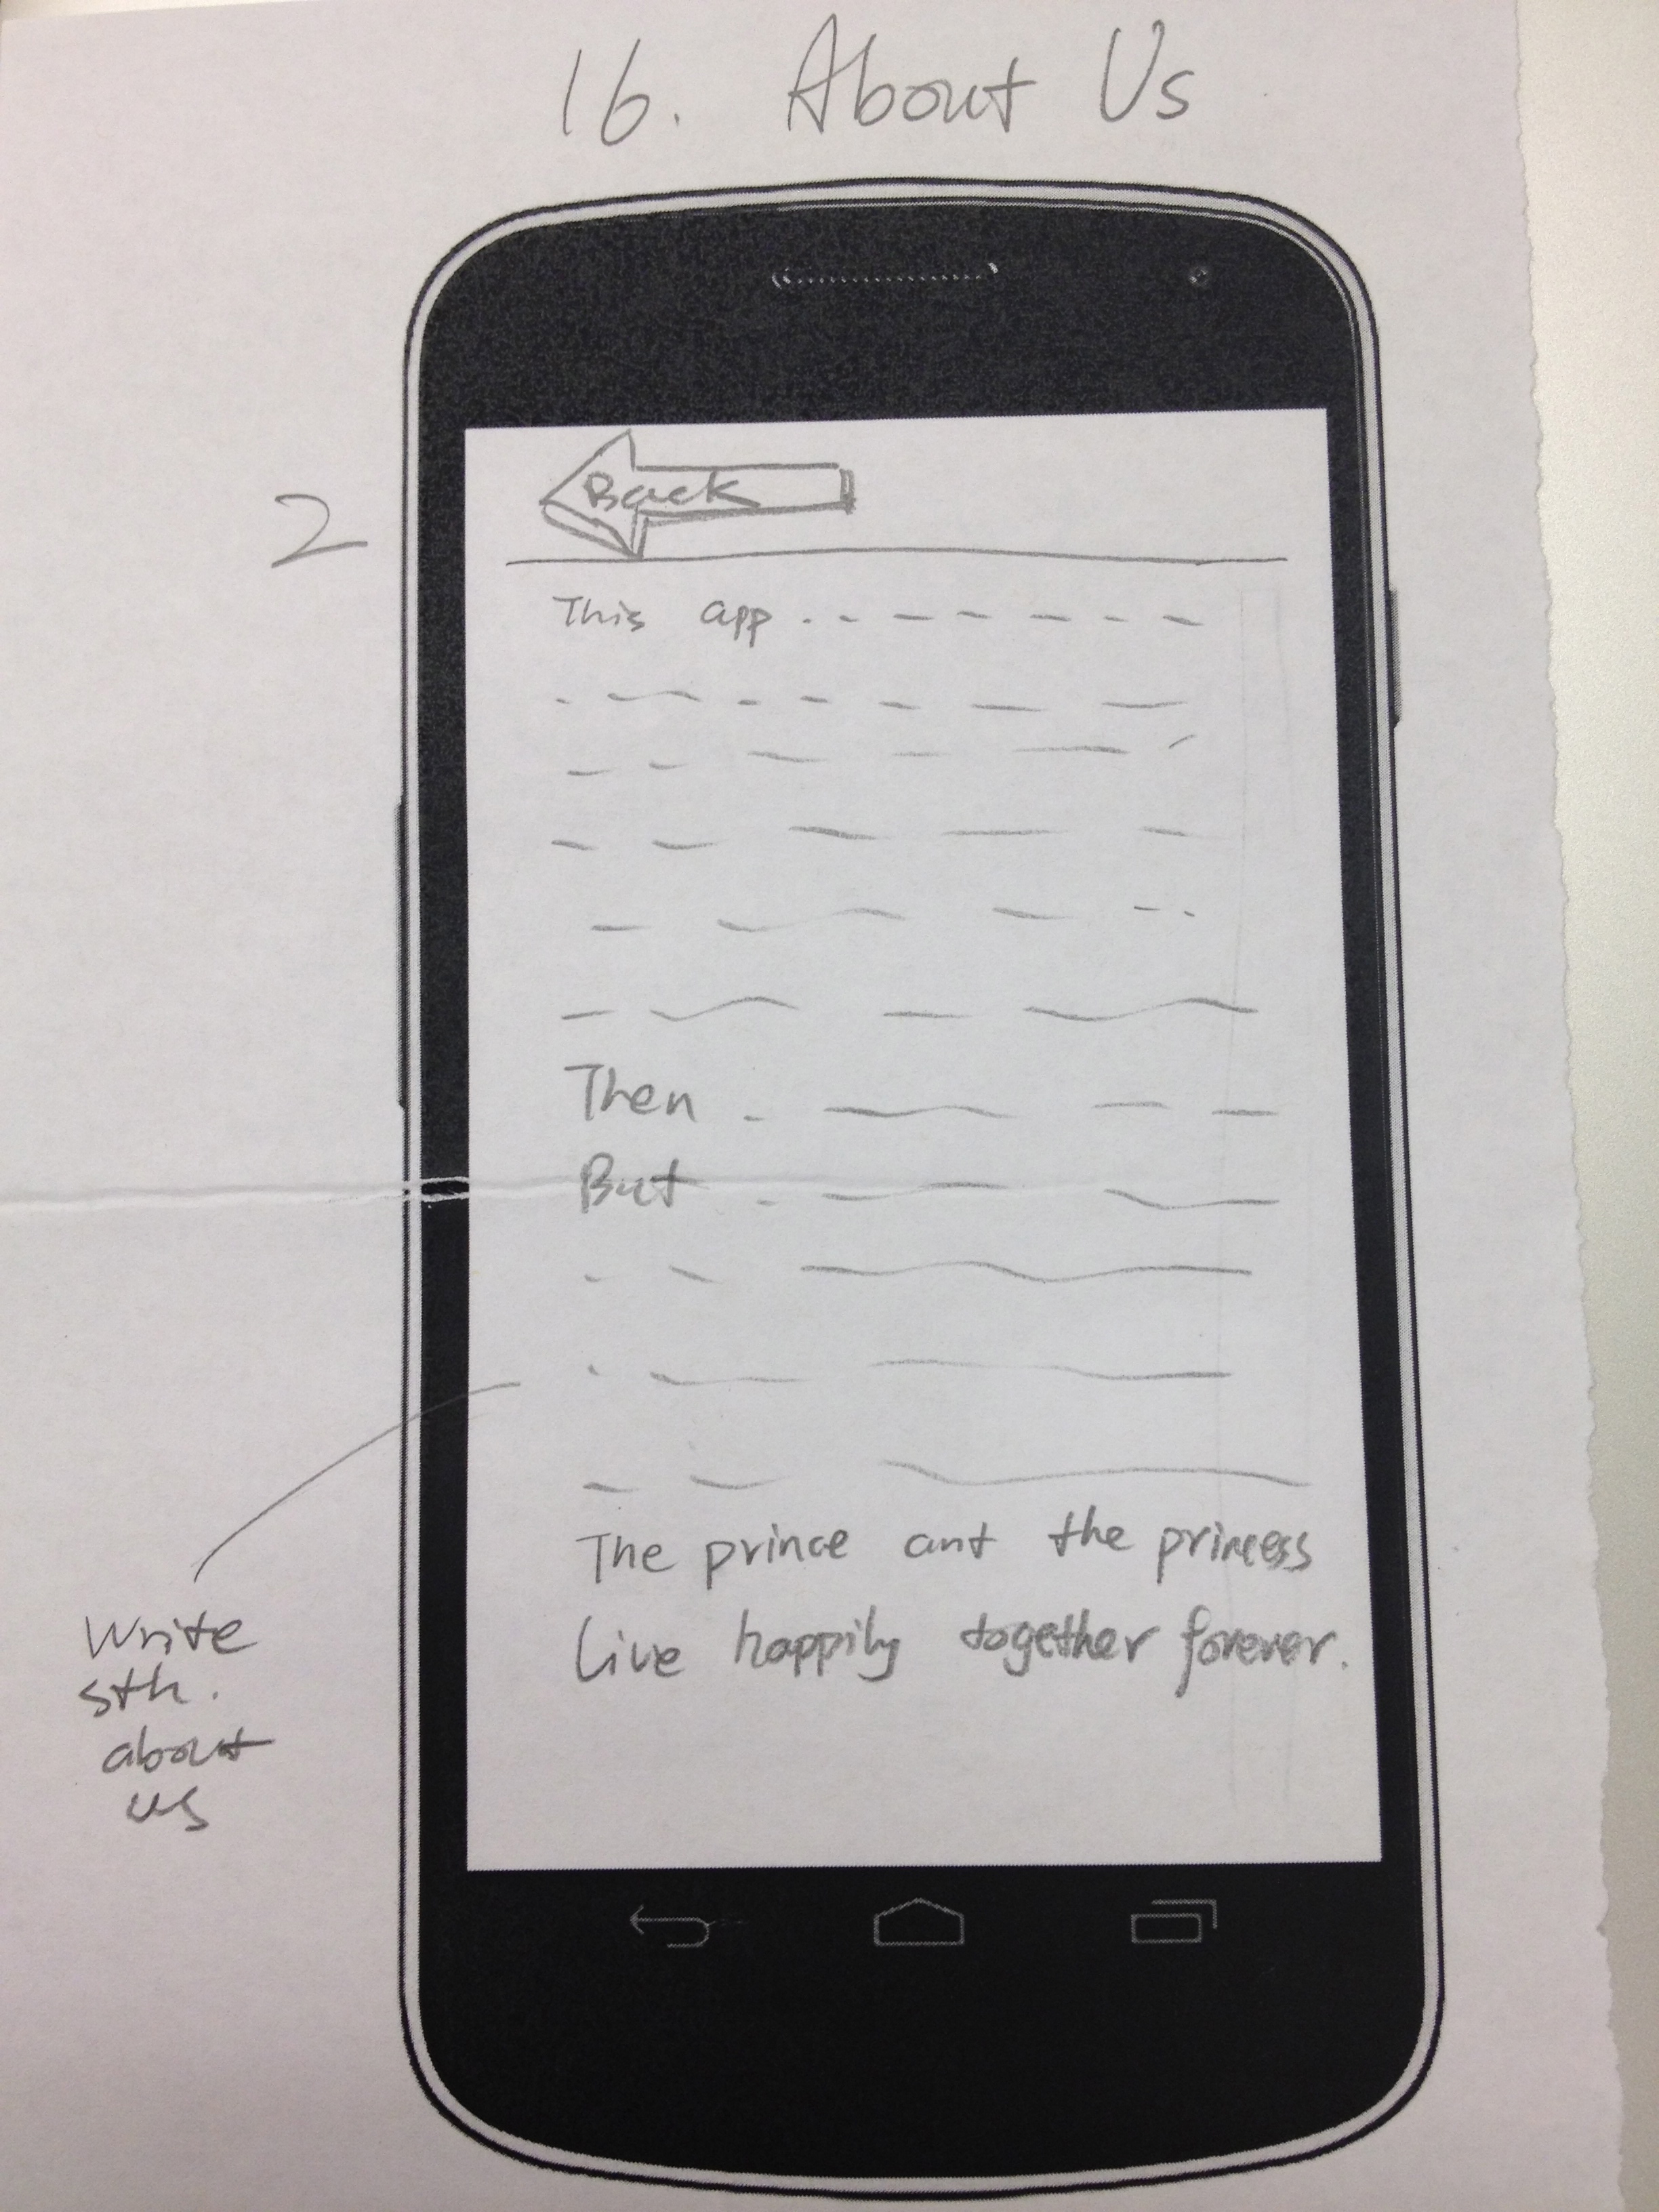 16. About Us
2
Back
This app
Then
But
The prince ant the princess
live happily together forever.
Write
sth.
about
us